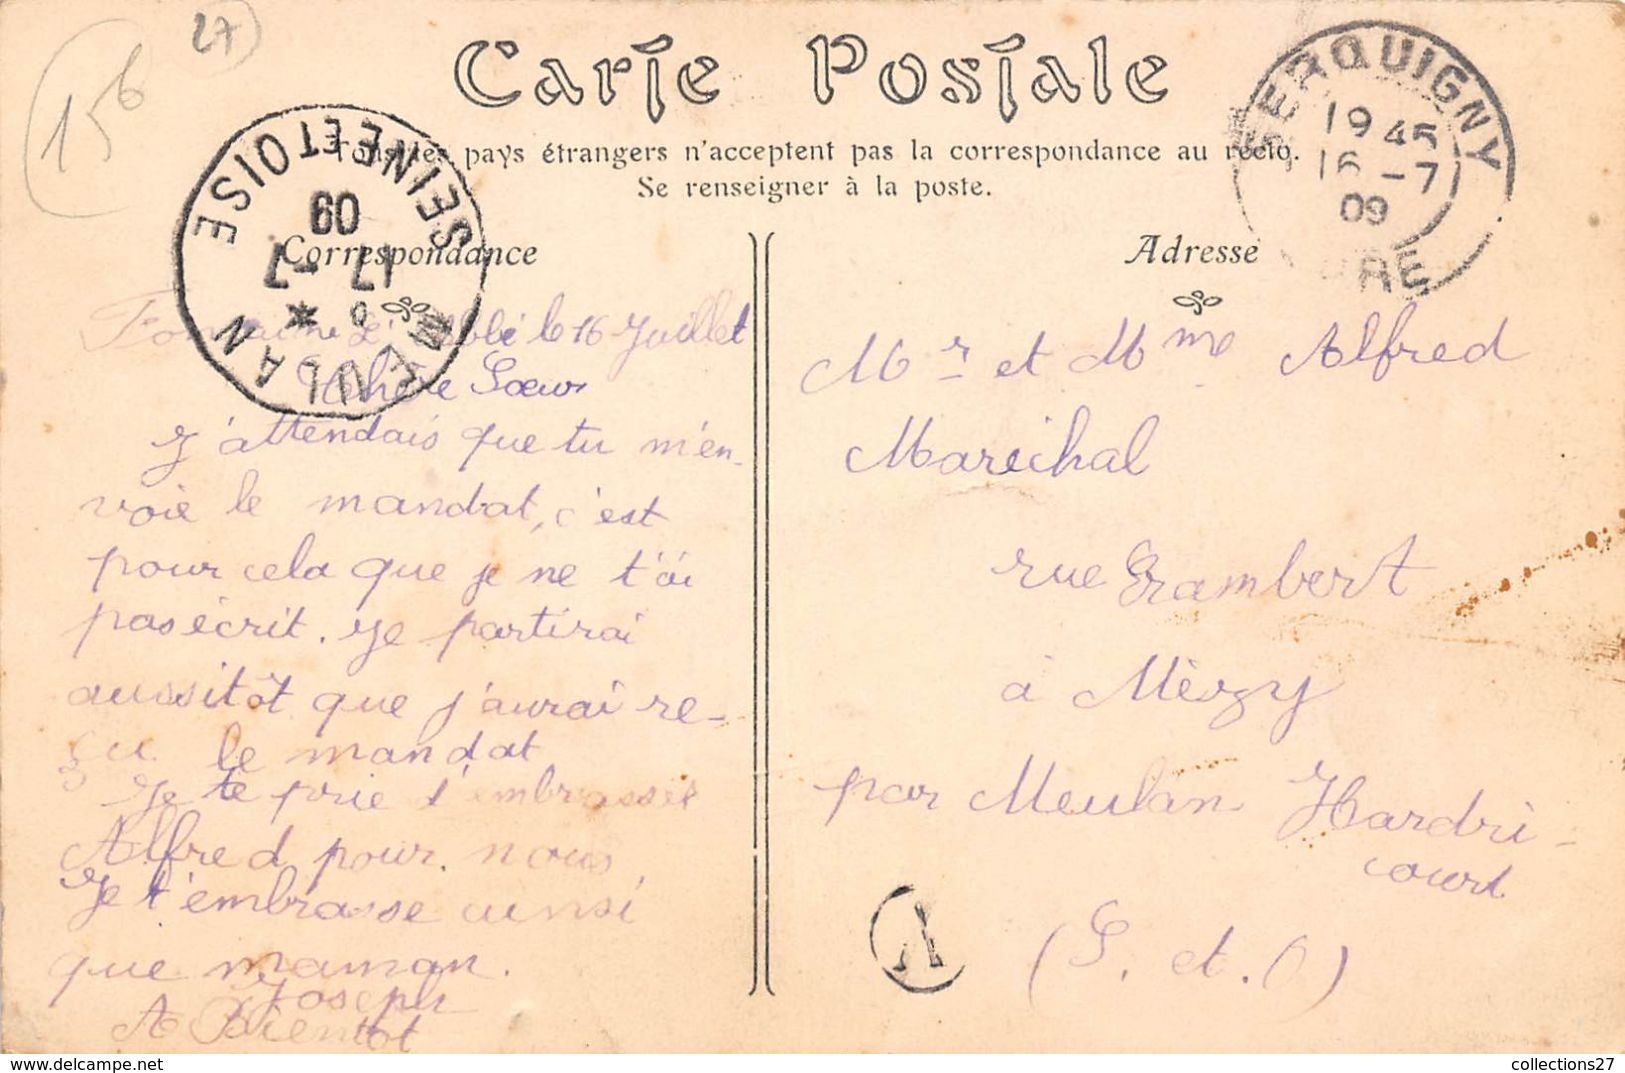 27
156
Carte Postale
Tous les pays étrangers n'acceptent pas la correspondance au recto.
Se renseigner à la poste.
SERQUIGNY
19 45
16 -7
09
EURE
MEULAN
SEINE ET OISE
17 -7
09
Correspondance
Adresse
Fontaine L'Abbé le 16 Juillet
Chère Sœur
J'attendais que tu m'en-
voie le mandat, c'est
pour cela que je ne t'ai
pas écrit. Je partirai
aussitôt que j'aurai re-
çu le mandat
Je te prie d'embrasser
Alfred pour nous
Je t'embrasse ainsi
que maman.
Joseph
A Bientot
Mr et Mme Alfred
Maréchal
rue Grambert
à Mèzy
par Meulan Hardri-
court
(S. et. O)
A
collections27